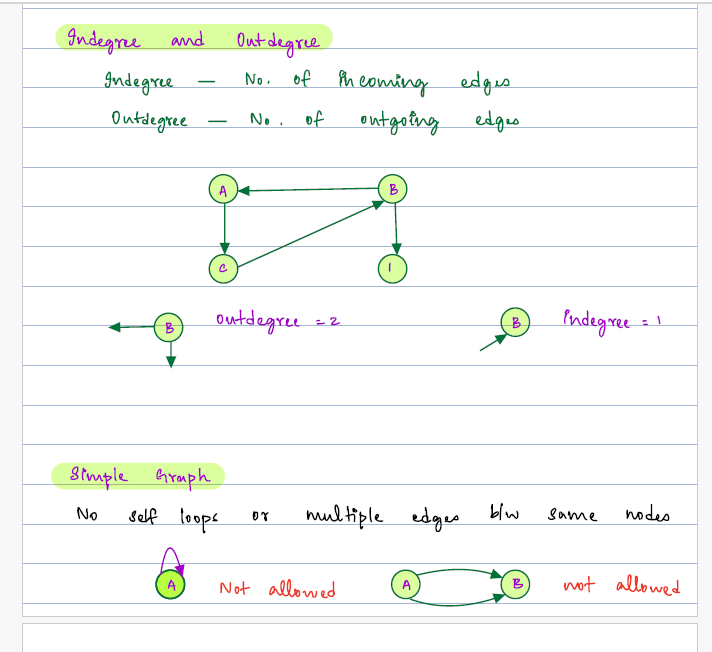 Indegree and Outdegree
Indegree — No. of incoming edges
Outdegree — No. of outgoing edges
A B
C I
B outdegree = 2 B indegree = 1
Simple Graph
No self loops or multiple edges b/w same nodes
A Not allowed A B not allowed